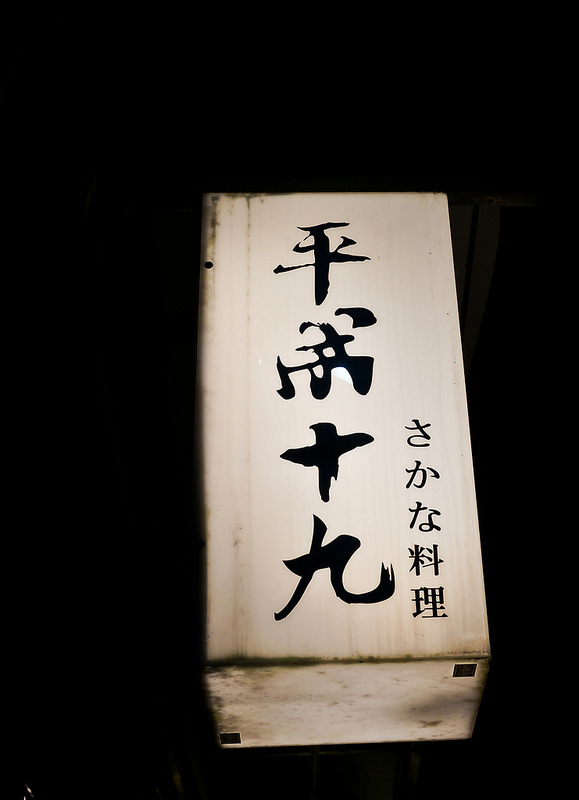 さかな料理
平 十九